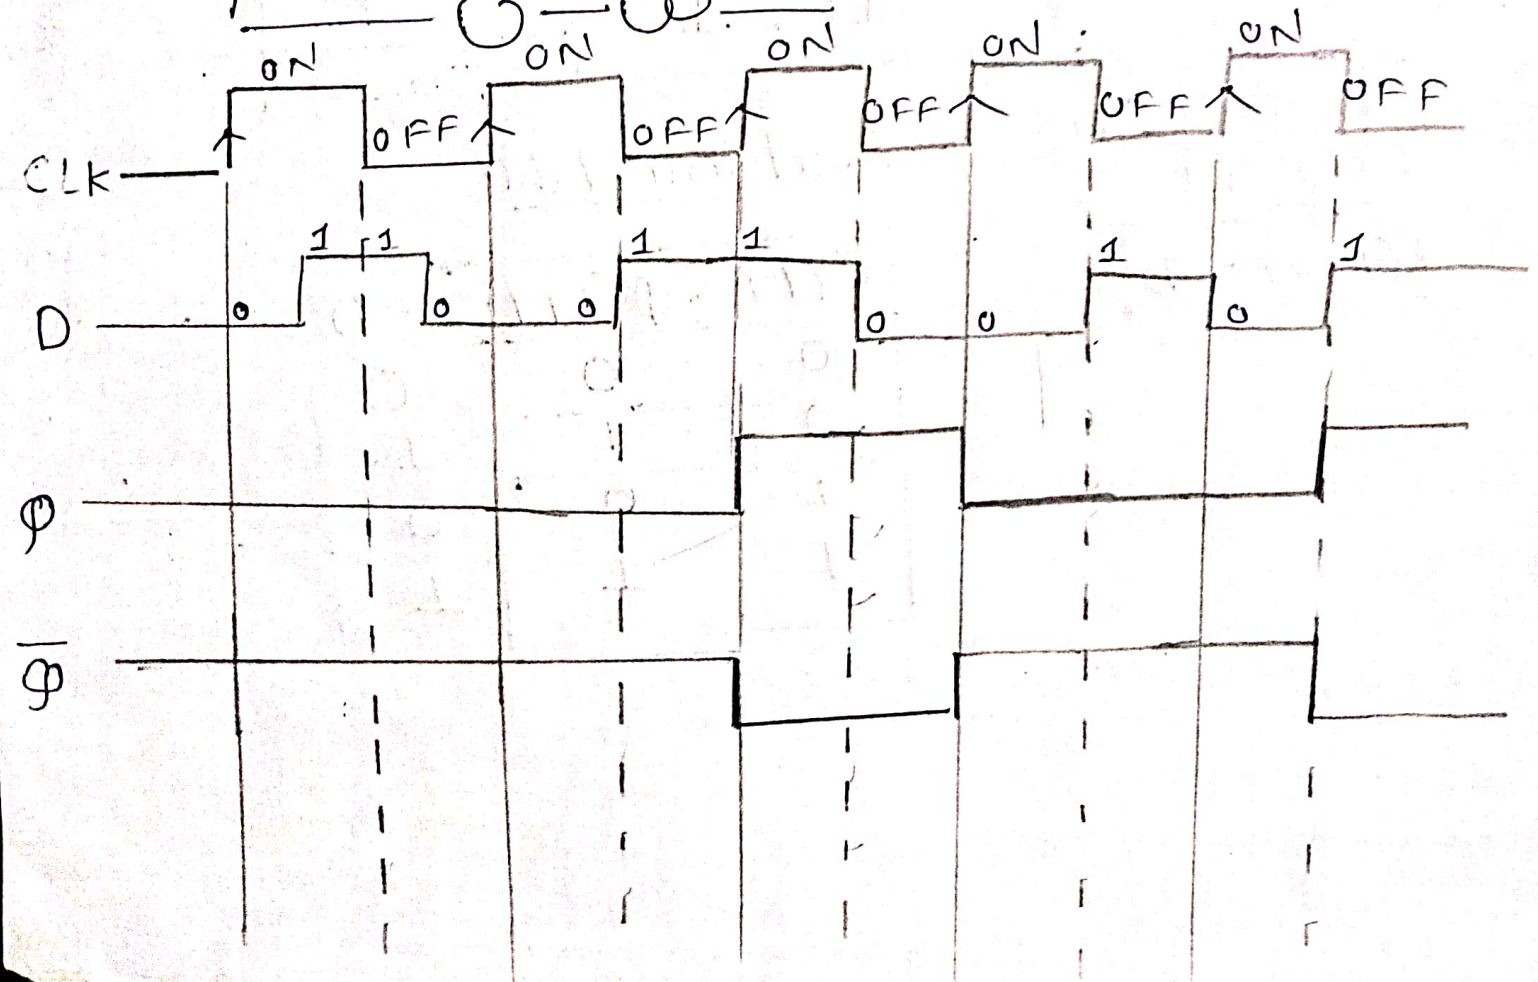 ON ON ON ON ON
CLK OFF OFF OFF OFF OFF
1 1 1 1 1 1
D 0 0 0 0 0 0
Q
Q̅